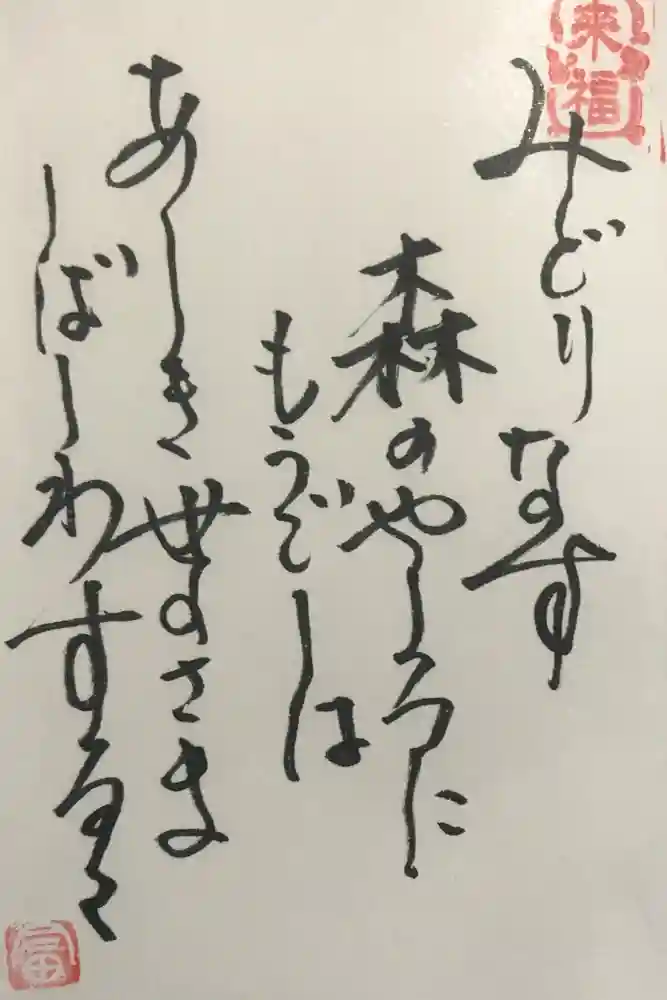 來福
みどりなす
森のやしろに
もうでしは
あしき世のさま
しばしわするる